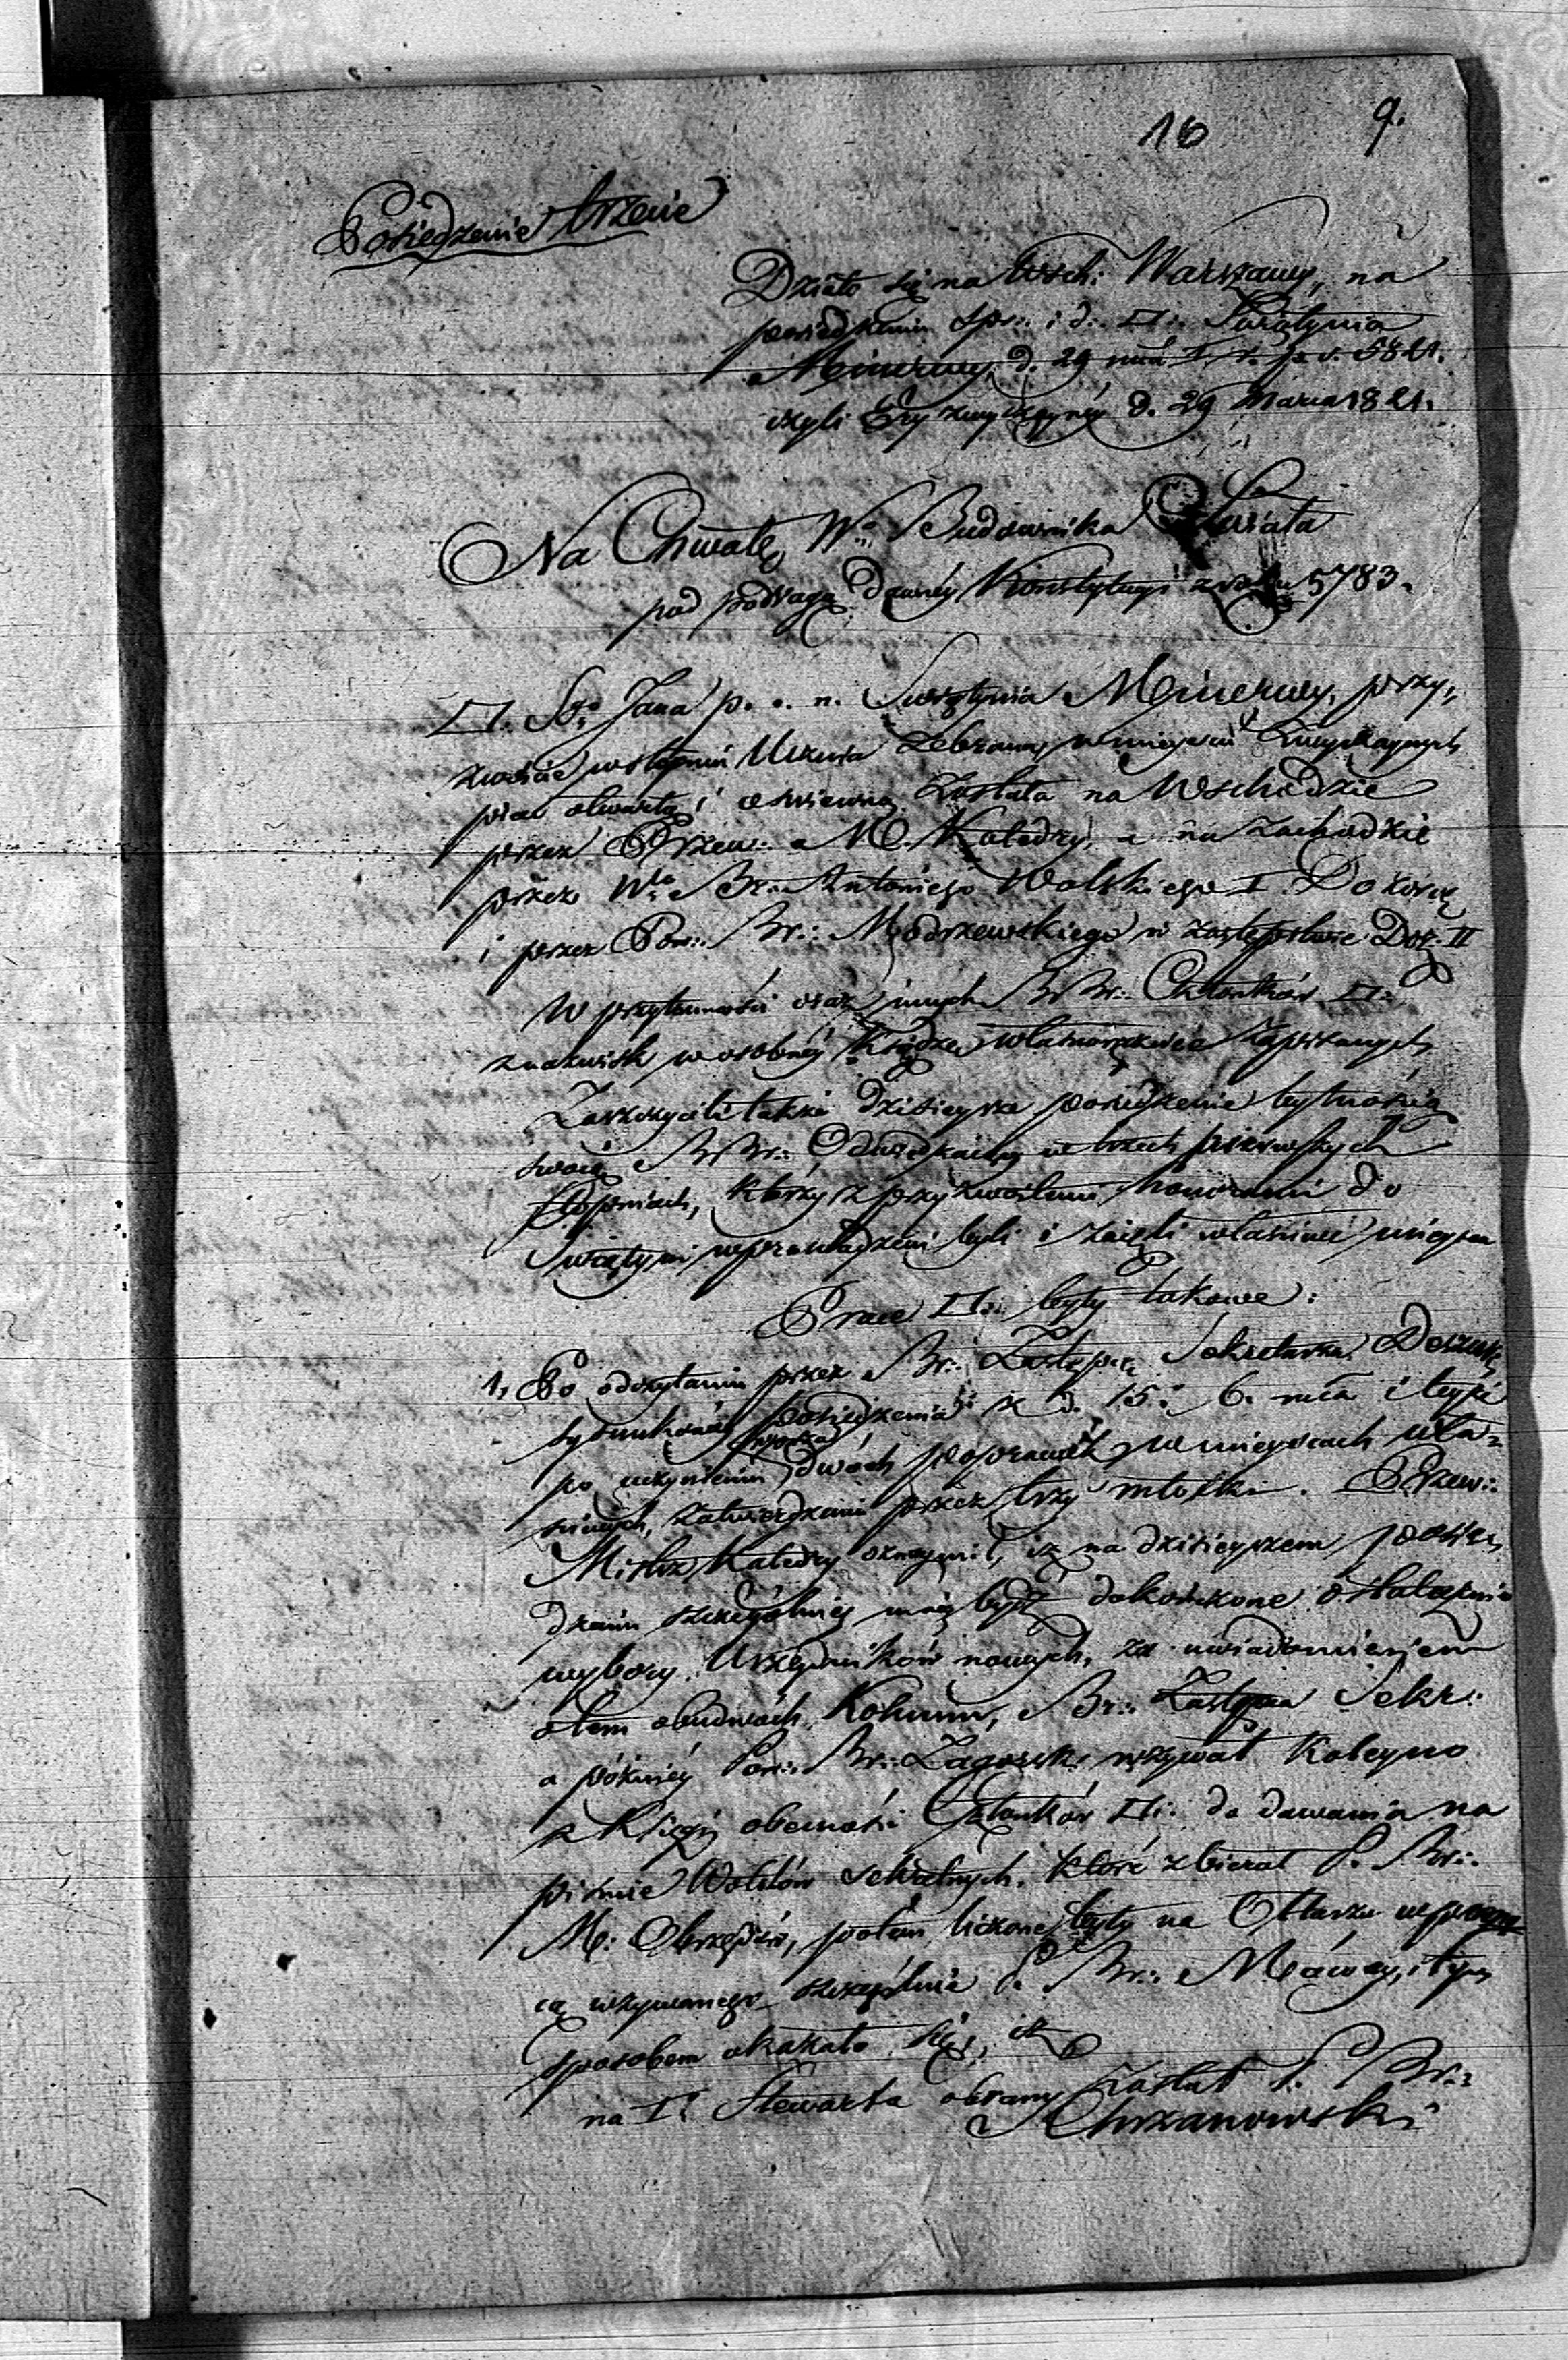 16 9.
Posiedzenie trzecie
Działo się na Wsch: Warszawy, na
posiedzeniu spr:. i d:. □:. Swiątynia
Minerwy, d. 29 mca I. r. p. ś. 5821.
czyli Ery zwyczayney d. 29 Marca 1821.
Na Chwałę Wo Budownika Swiata
pod powagą dawnéy Konstytucyi z roku 5783.
□. Sgo Jana p. n. Swiątynia Minerwy, przy,
zwoicie w stopniu Ucznia zebrana, w mieyscu zwyczaynych
prac otwartą i oswieconą została na Wschodzie
przez Przew:. M. Katedry, a na zachodzie
przez Wgo Br:. Antoniego Wolskiego I. Dozorcę
i przez Pow:. Br:. Modrzewskiego w zastępstwie Doz. II
W przytomności oraz innych BrBr:. Członków □:.
z nazwisk w osobnéy Księdze własnoręcznie zapisanych
Zaszczycili także dzisieysze posiedzenie bytnością
swoią BrBr:. Odwiedzaiący w trzech pierwszych
stopniach, którzy z przyzwoitemi honorami do
Swiątyni wprowadzeni byli i zaięli właściwe mieysca
Prace □:. były takowe:
1, Po odczytaniu przez Br:. Zastępcę Sekretarza Deszczki
rysunkowéy posiedzenia z d. 15. 6. mca i teyże
po uczynieniu dwóch poprawek w mieyscach wła=
sciwych, zatwierdzeniu przez trzy młotki. Przew:.
Mistrz Katedry oznaymił, iż na dzisieyszem posie,
dzeniu szczególniéy maią bydź dokończone ostatecznie
wybory Urzędników nowych, za uwiadomieniem
otem obudwóch Kolumn, Br:. Zastępca Sekr:.
a poźniéy Pow:. Br:. Zagorski wzywał koleyno
z Księgi obecności Członków □:. do dawania na
pismie Wotów sekretnych, które zbierał P. Br:.
M: Obrzędów, potem liczone były na Ołtarzu
wzywanego szczególnie P. Br:. Mówcy, i tym
sposobem okazało się, iż
na Igo Stewarta obrany został P. Br:.
Chrzanowski